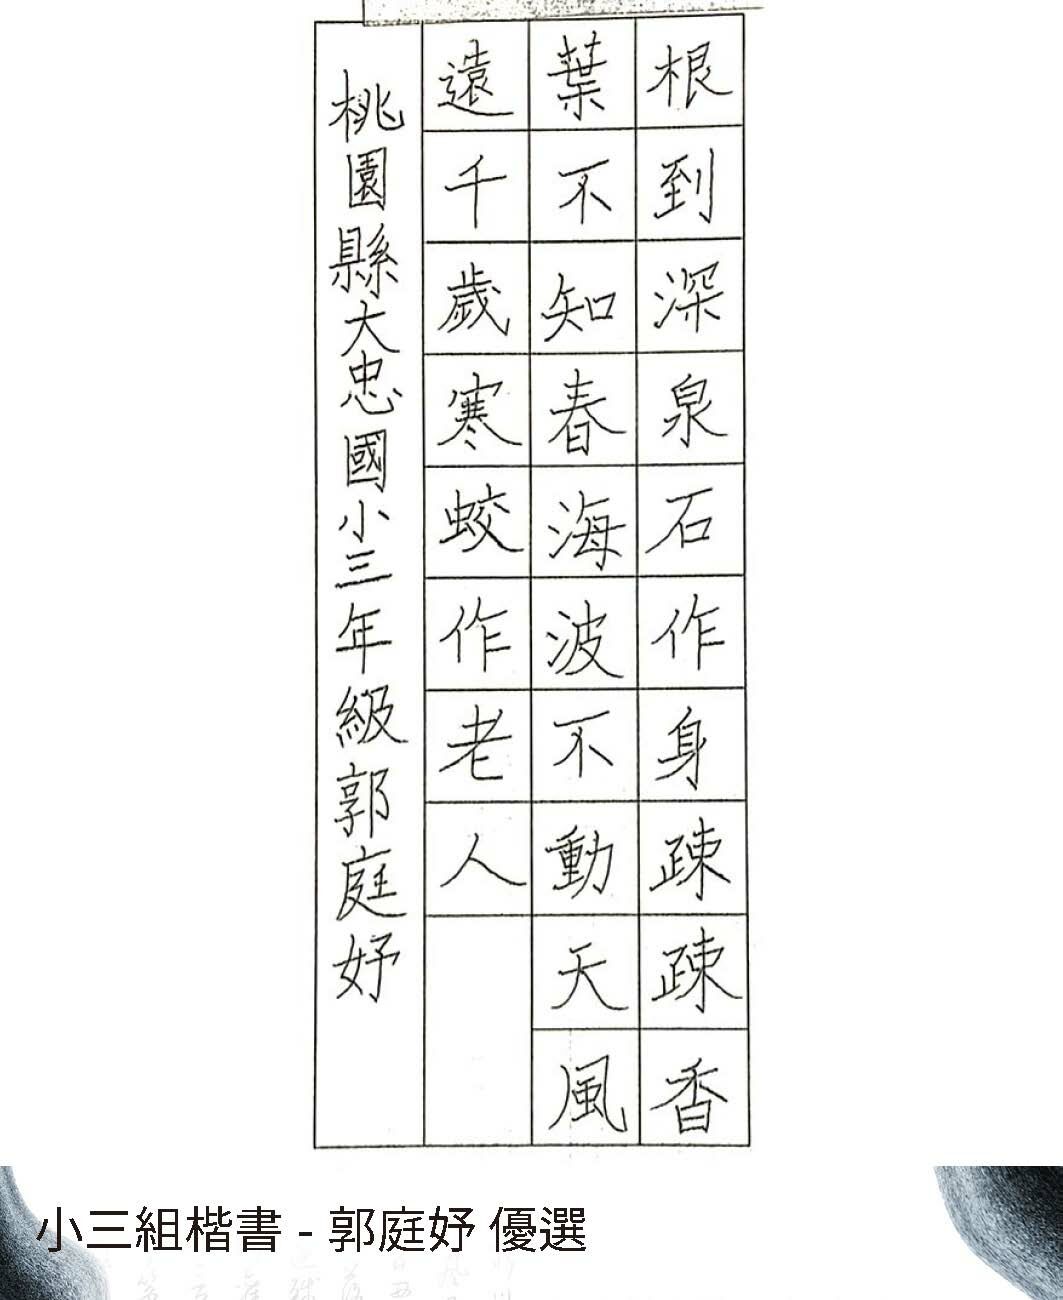 根到深泉石作身疎疎香
葉不知春海波不動天風
遠千歲寒蛟作老人
桃園縣大忠國小三年級郭庭妤
小三組楷書 - 郭庭妤 優選